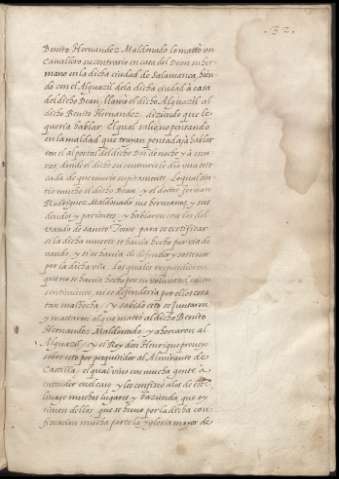 .32.
Benito Hernandez Maldonado lo mató un
Cavallero su contrario en casa del Dean su her
mano en la dicha ciudad de Salamanca, bien
do con el Alguazil de la dicha ciudad à casa
del dicho Dean, llamó el dicho Alguazil al
dicho Benito Hernandez, diziendo que le
queria hablar. El qual salio no pensando
en la maldad que trayan pensada, y à hablar
con el al portal del dicho Dean de noche y à
donde el dicho su contrario le dio una esto
cada de que murio supitamente. Lo qual sin
tio mucho el dicho Dean, y el doctor
Rodriguez Maldonado sus hermanos, y sus
deudos y parientes, y hablaron con los del
vando de santo Tome para se certificar
si la dicha muerte se havia hecho por via de
vando, y si se havia de defender y sostener
por la dicha via. Los quales respondieron
que no se havia hecho por su voluntad ni con
sentimiento, ni se defenderia por ellos cosa
tan mal hecha, y sabido esto se juntaron
y mataron al que mató al dicho Benito
Hernandez Maldonado, y ahorcaron al
Alguazil, y el Rey don Henrique proveyo
sobre esto por pesquisidor al Almirante de
Castilla, el qual vino con mucha gente à
entender en el caso, y les confiscó a los de este
linage muchos lugares y hazienda, que oy
tienen dellos, que se huvo por la dicha con
fiscacion mucha parte la yglesia mayor de